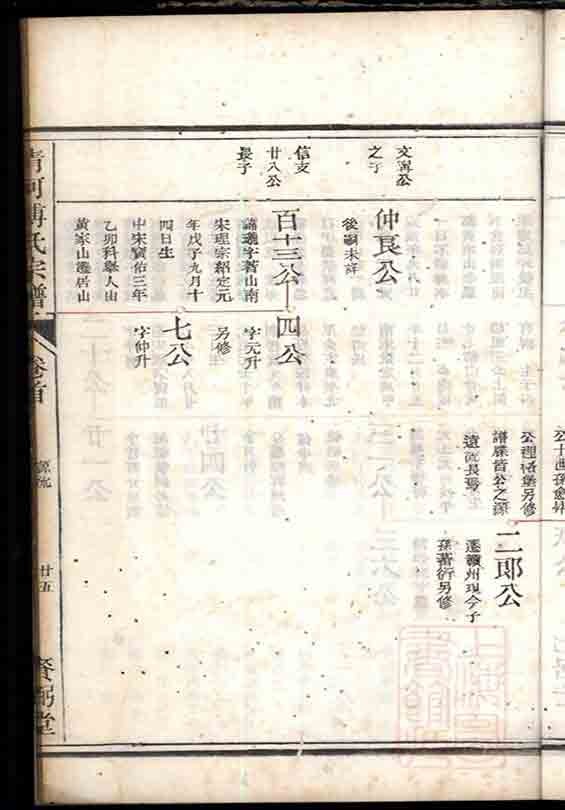 公十四孫僉
公理格墺另修
譜牒皆公之源
遠流長焉
二郎公
遷贛州現今子
孫蕃衍另修
文寗公
之子
仲良公
後嗣未詳
信支
廿八公
長子
百十三公
四公
諱羲字著山南
宋理宗紹定元
年戊子九月十
四日生
中宋寶佑三年
乙卯科舉人由
黃家山遷居山
字元升
另修
七公
字仲升
清河傅氏宗譜
卷之首
源流
廿五
賚弼堂